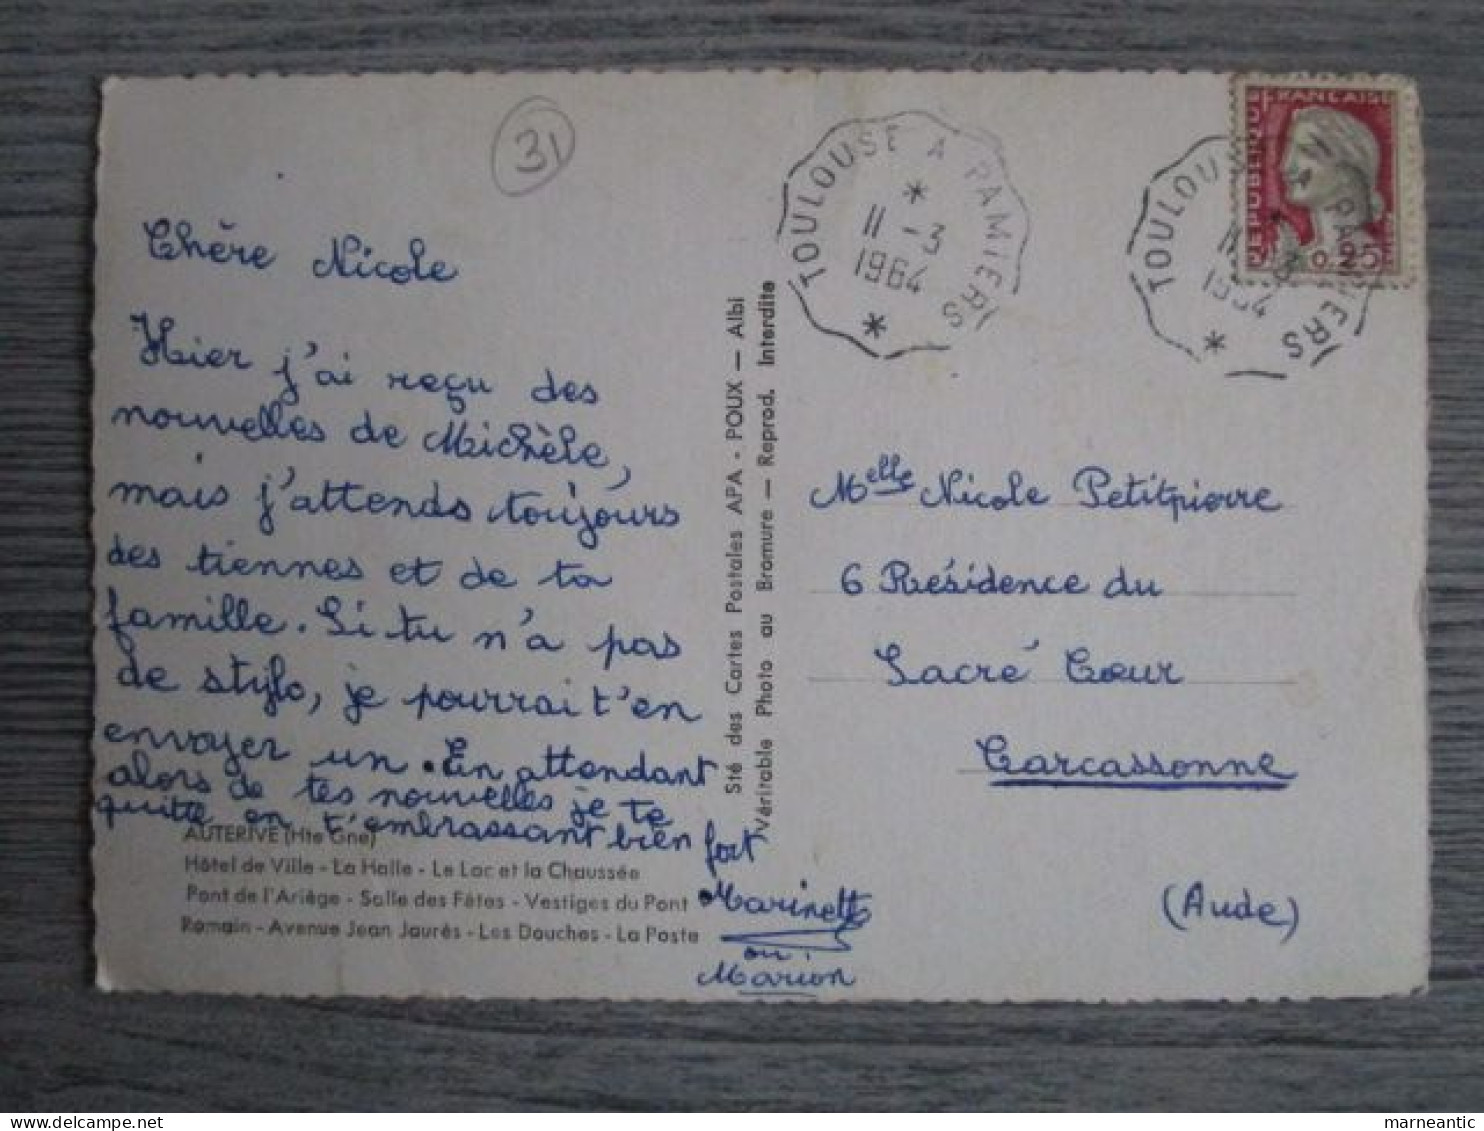 31
Chère Nicole
Hier j'ai reçu des
nouvelles de Michèle,
mais j'attends toujours
des tiennes et de ta
famille. Si tu n'a pas
de stylo, je pourrai t'en
envoyer un. En attendant
alors de tes nouvelles je te
quitte en t'embrassant bien fort
Marinette
ou
Marion
AUTERIVE (Hte Gne)
Hôtel de Ville - La Halle - Le Lac et la Chaussée
Pont de l'Ariège - Salle des Fêtes - Vestiges du Pont
Romain - Avenue Jean Jaurès - Les Douches - La Poste
Sté des Cartes Postales APA - POUX — Albi
Véritable Photo au Bromure — Reprod. Interdite
TOULOUSE A PAMIERS
11 -3
1964
REPUBLIQUE FRANÇAISE
0,25
TOULOUSE A PAMIERS
11 -3
1964
Melle Nicole Petitpierre
6 Résidence du
Sacré Cœur
Carcassonne
(Aude)
marneantic